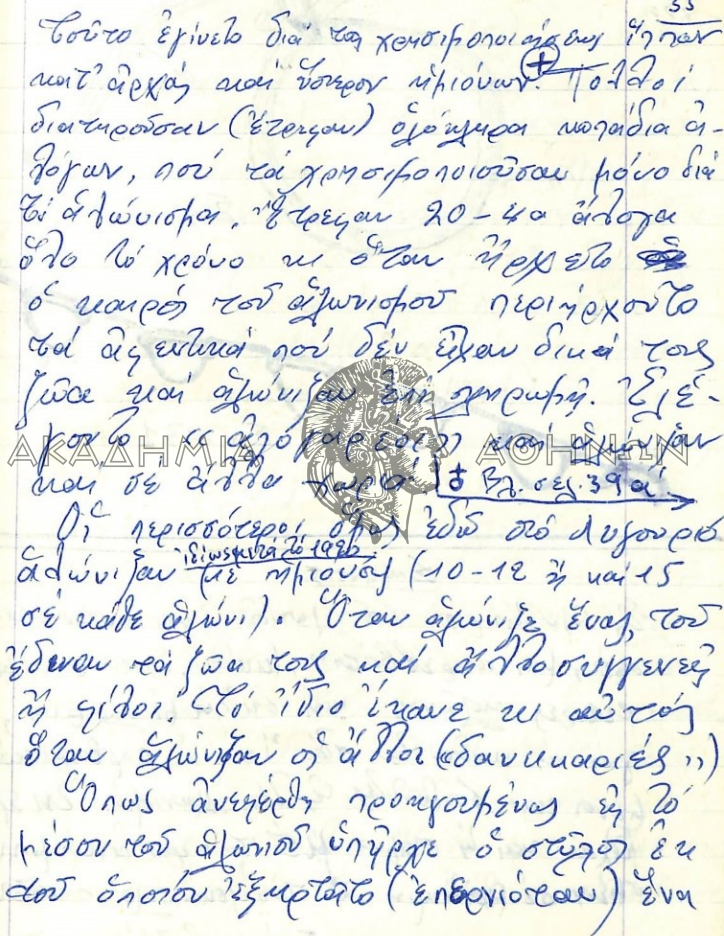 35
τοῦτο ἐγίνετο διά τῆς χρησιμοποιήσεως ἵππων
κατ' ἀρχάς καί ὕστερον ἡμιόνων. + Πολλοί
διατηροῦσαν (ἔτρεφαν) ὁλόκληρα κοπάδια ἀ-
λόγων, πού τά χρησιμοποιοῦσαν μόνο διά
τό ἁλώνισμα. Ἔτρεφαν 20-40 ἄλογα
ὅλο τό χρόνο κι ὅταν ἤρχετο
ὁ καιρός τοῦ ἁλωνισμοῦ περιήρχοντο
τά ἀφεντικά πού δέν εἶχαν δικά τους
ζῶα καί ἁλώνιζαν ἐπί πληρωμῇ. Ἐλέ-
γοντο «ἀλογαραῖοι» καί ἁλώνιζαν
ΑΚΑΔΗΜΙΑ ΑΘΗΝΩΝ
καί σέ ἄλλα χωριά. + βλ. σελ. 39α
Οἱ περισσότεροι ὅμως ἐδῶ στό Λυγουριό
ἁλώνιζαν μέ ἡμιόνους (10-12 ἤ καί 15
σέ κάθε ἁλώνι). Ὅταν ἁλώνιζε ἕνας, τοῦ
ἔδιναν τά ζῶα τους καί ἄλλοι συγγενεῖς
ἤ φίλοι. Τό ἴδιο ἔκανε κι αὐτός
ὅταν ἁλώνιζαν οἱ ἄλλοι («δανεικαριές»)
Ὅπως ἀνεφέρθη προηγουμένως εἰς τό
μέσον τοῦ ἁλωνιοῦ ὑπῆρχε ὁ στῦλος ἐκ
τοῦ ὁποίου ἐξηρτᾶτο (ἐπερνιόταν) ἕνα